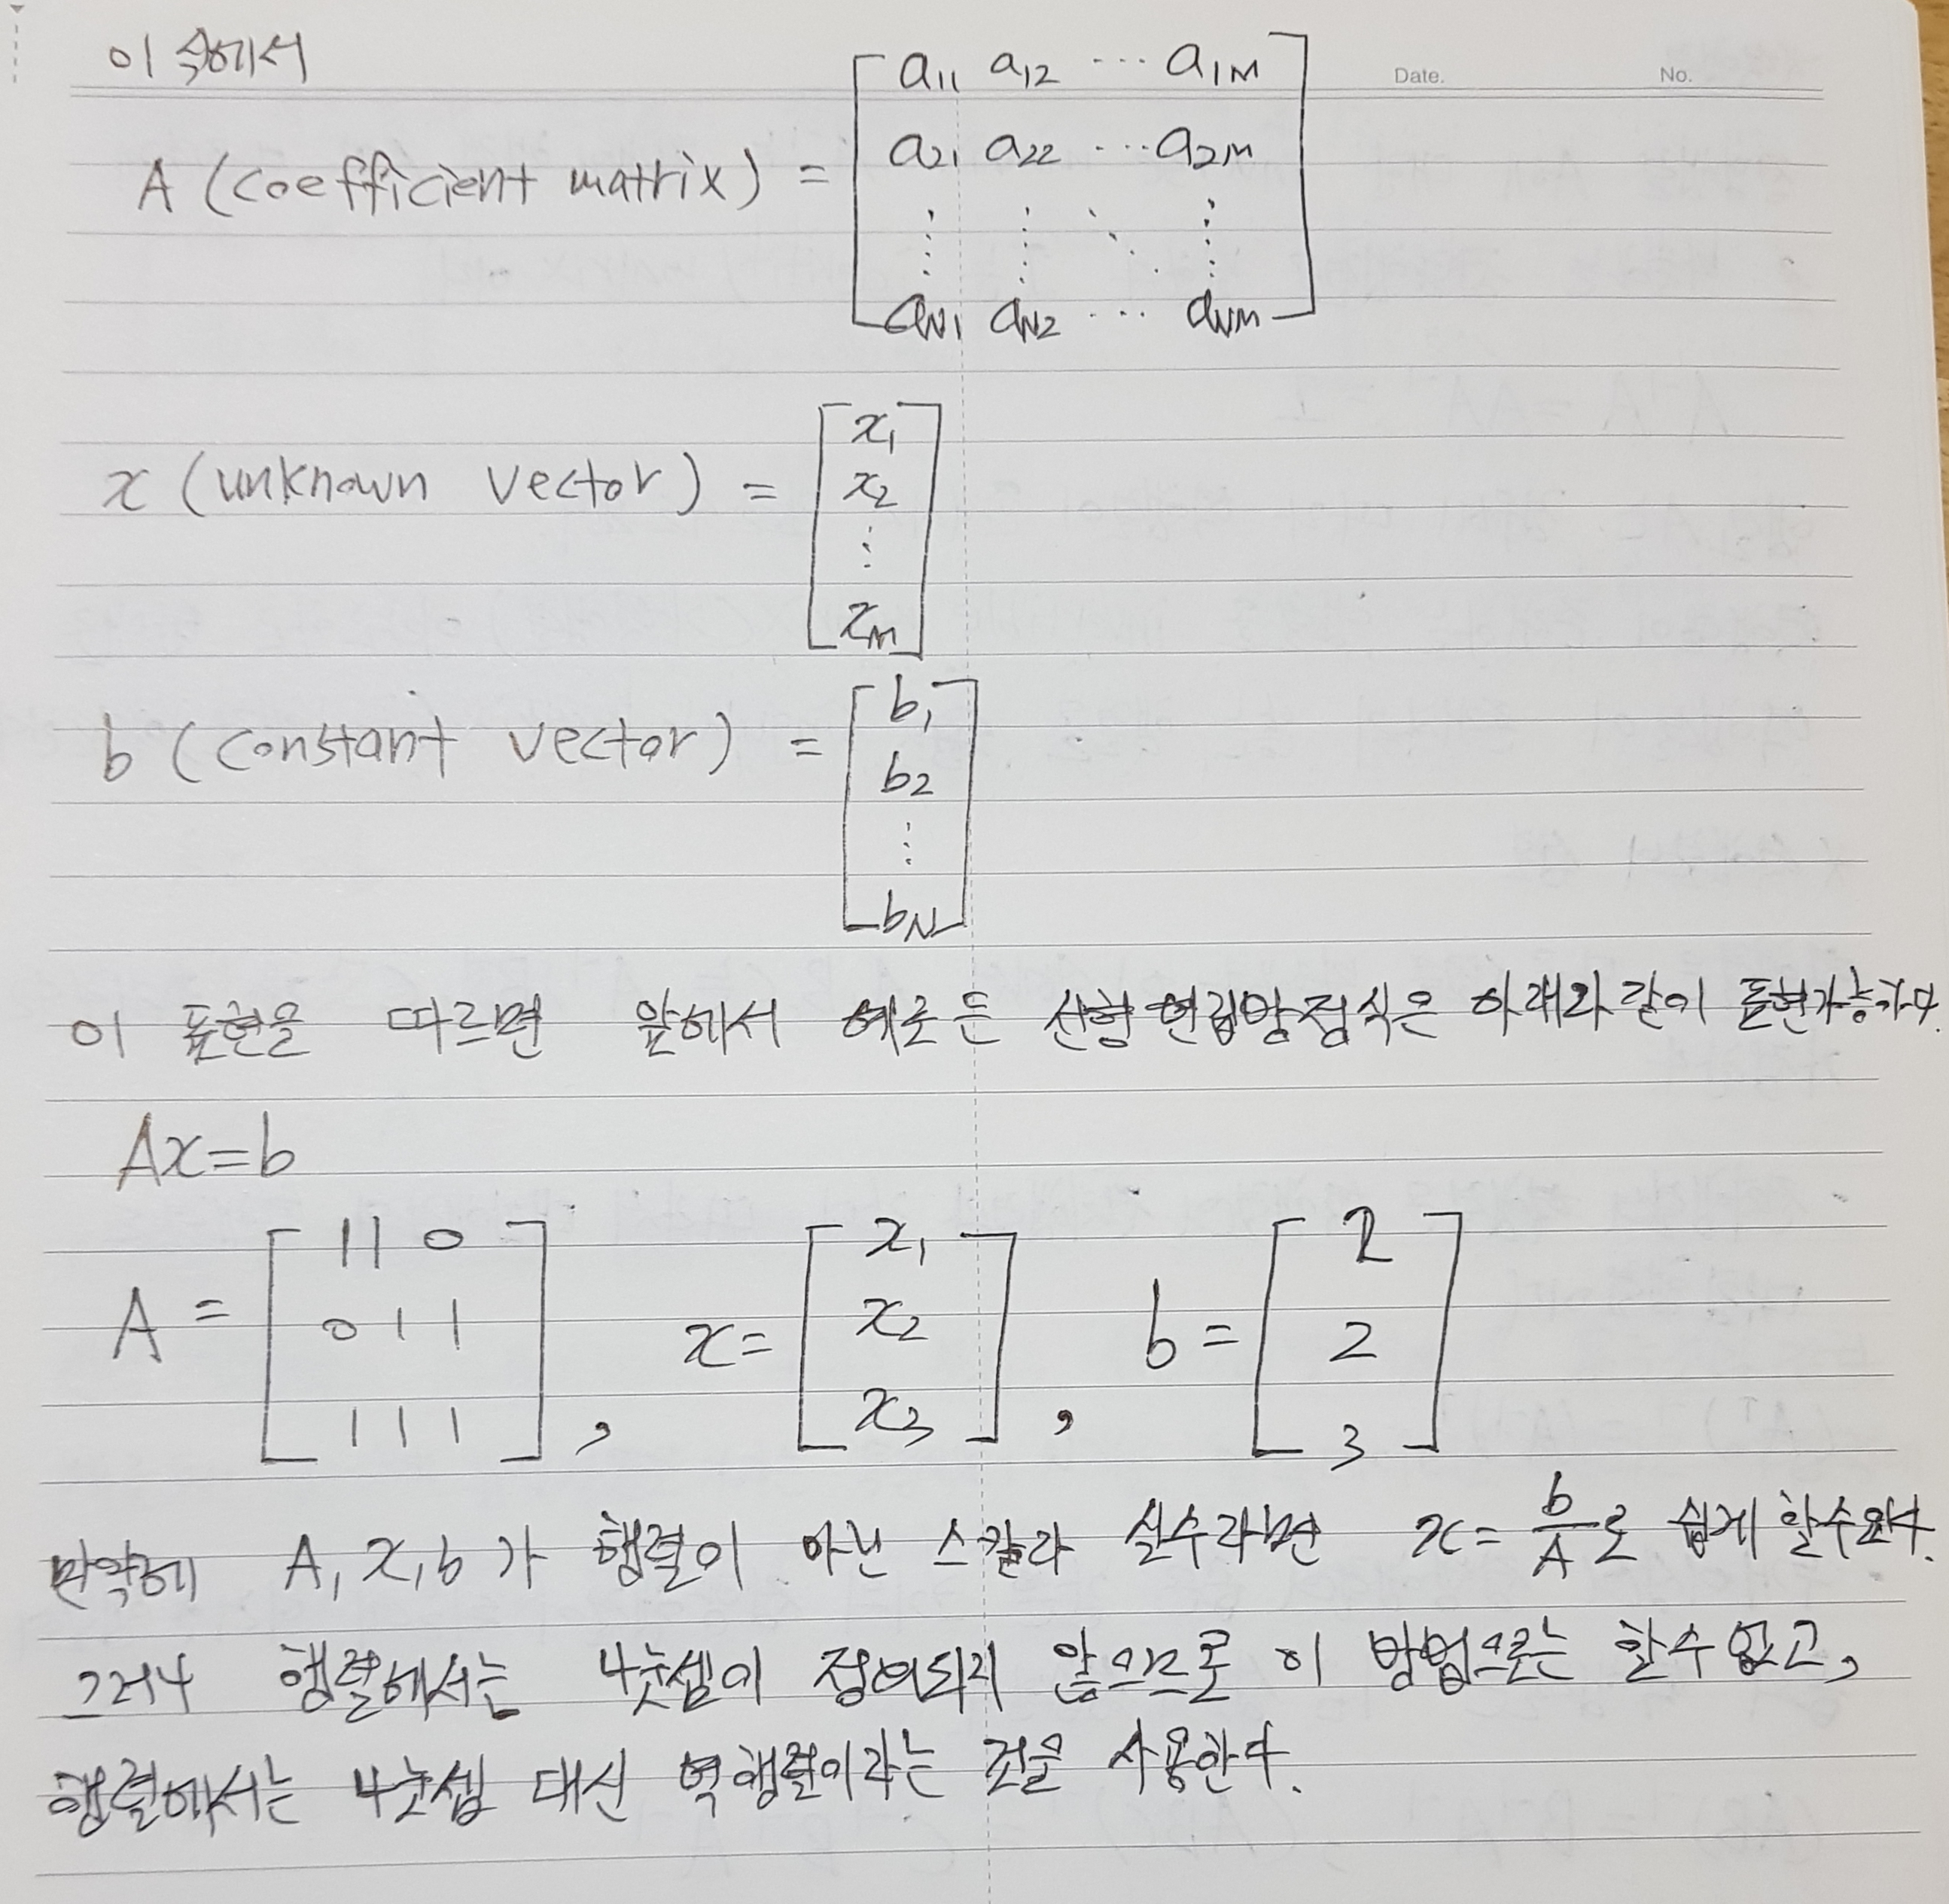 이 식에서
Date. No.
A (coefficient matrix) = [ a11 a12 ⋯ a1M
a21 a22 ⋯ a2M
⋮ ⋮ ⋱ ⋮
aN1 aN2 ⋯ aNM ]
x (unknown vector) = [ x1
x2
⋮
xM ]
b (constant vector) = [ b1
b2
⋮
bN ]
이 표현을 따르면 앞에서 예로 든 선형연립방정식은 아래와 같이 표현가능하다.
Ax=b
A = [ 1 1 0
0 1 1
1 1 1 ] , x = [ x1
x2
x3 ] , b = [ 2
2
3 ]
만약에 A, x, b 가 행렬이 아닌 스칼라 실수라면 x = b/A 로 쉽게 할수있다.
그러나 행렬에서는 나눗셈이 정의되지 않으므로 이 방법으로는 할수 없고,
행렬에서는 나눗셈 대신 역행렬이라는 것을 사용한다.